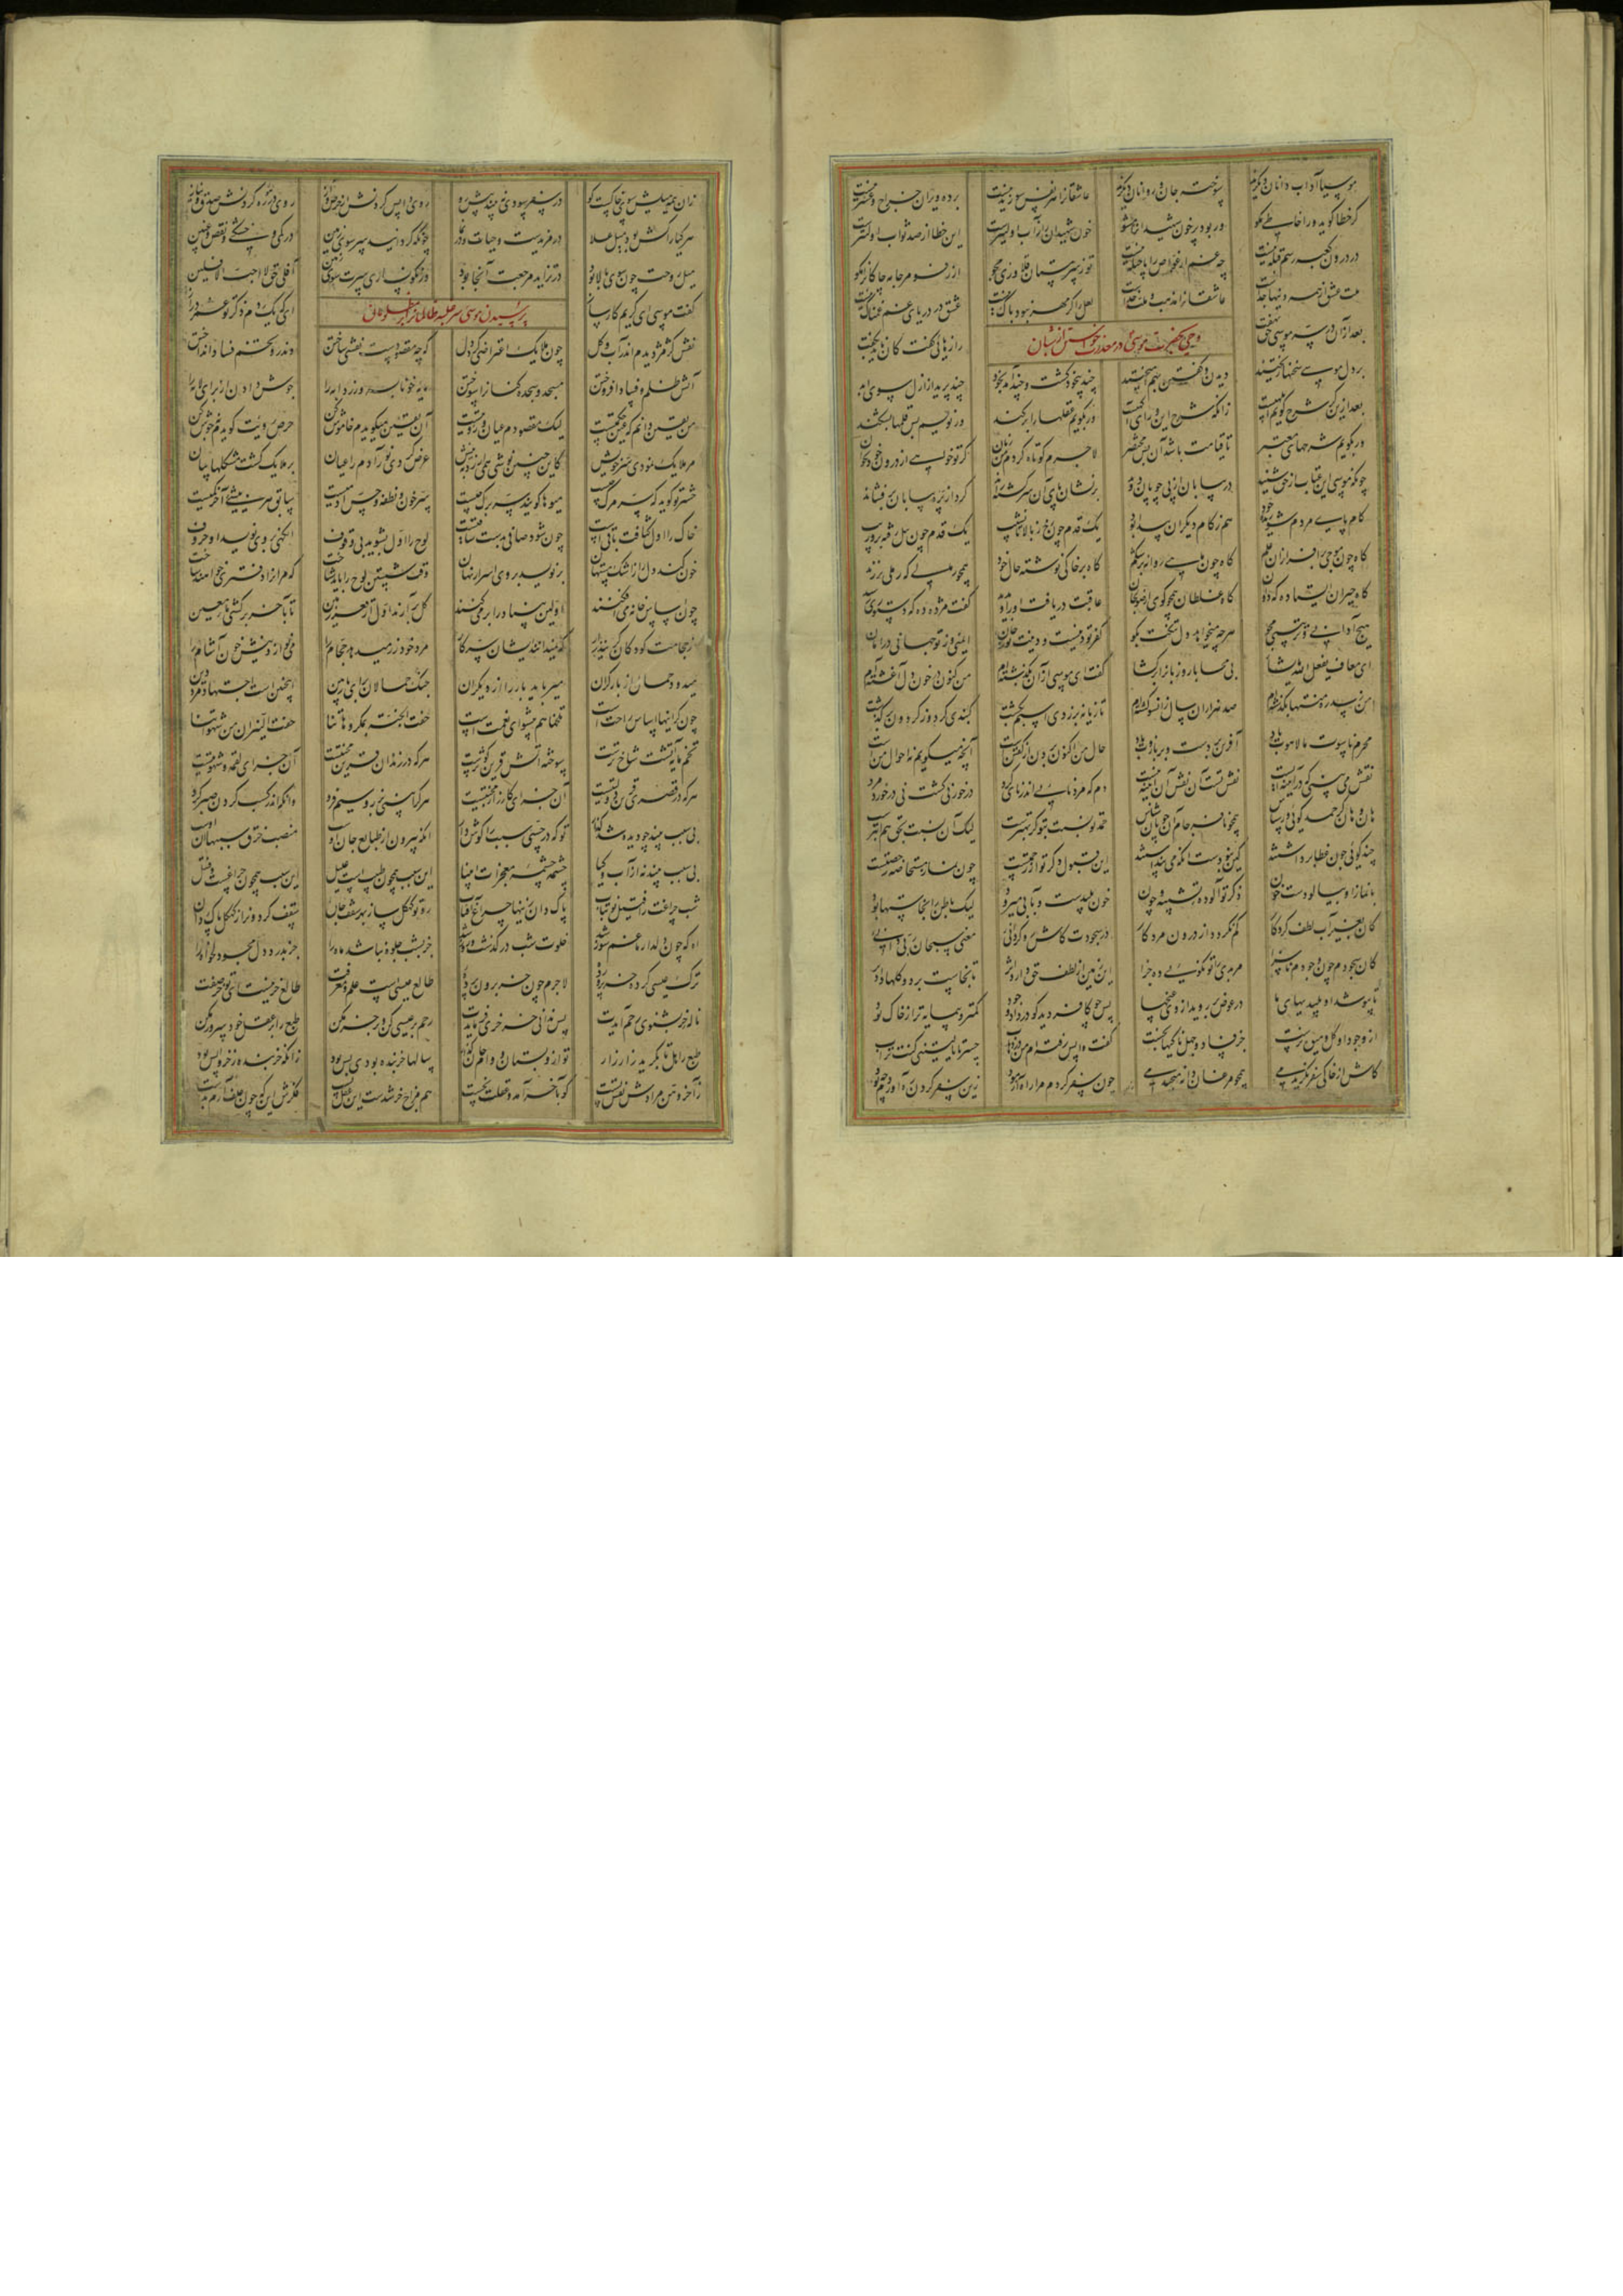 موسیا آداب دانان دیگرند سوخته جان و روانان دیگرند عاشقانرا هر نفس سوزیدنیست بر ده ویران خراج و عشر نیست
گر خطا گوید ورا خاطی مگو ور بود پر خون شهید آنرا مشو خون شهیدانرا ز آب اولیترست این خطا از صد ثواب اولیترست
در درون کعبه رسم قبله نیست چه غم ار غواص را پاچیله نیست تو ز سرمستان قلاوزی مجو از رفو مر جامه چاکانرا مگو
ملت عشق از همه دینها جداست عاشقانرا مذهب و ملت خداست لعل را گر مهر نبود باک نیست عشق در دریای غم غمناک نیست
وحی بحضرت موسی در معذرت خواستن از شبان
بعد از آن در سر موسی حق نهفت رازهایی گفت کان ناید بگفت
بر دل موسی سخنها ریختند دیدن و گفتن بهم آمیختند چند بیخود گشت و چند آمد بخود چند پرید از ازل سوی ابد
بعد ازین گر شرح گویم ابلهیست زانکه شرح این ورای آگهیست ور بگویم عقلها را بر کند ور نویسم بس قلمها بشکند
ور بگویم شرحهای معتبر تا قیامت باشد آن بس مختصر لاجرم کوتاه کردم من زبان گر تو خواهی از درون خود بخوان
چونکه موسی این عتاب از حق شنید در بیابان از پی چوپان دوید بر نشان پای آن سرگشته راند گرد از پره بیابان بر فشاند
گام پای مردم شوریده خود هم ز گام دیگران پیدا بود یک قدم چون رخ ز بالا تا نشیب یک قدم چون پیل رفته بر وریب
گاه چون موجی بر افرازان علم گاه چون ماهی روانه بر شکم گاه بر خاکی نوشته حال خود همچو رمالی که رملی بر زند
گاه حیران ایستاده گه دوان گاه غلطان همچو گوی از صولجان عاقبت دریافت او را و بدید گفت مژده ده که دستوری رسید
هیچ آدابی و ترتیبی مجو هر چه میخواهد دل تنگت بگو کفر تو دینست و دینت نور جان ایمنی وز تو جهانی در امان
ای معاف یفعل الله ما یشا بی محابا رو زبانرا بر گشا گفت ای موسی از آن بگذشته ام من کنون در خون دل آغشته ام
من ز سدره منتهی بگذشته ام صد هزاران سال زانسو گشته ام تازیانه بر زدی اسبم بگشت گنبدی کرد و ز گردون بر گذشت
محرم ناسوت ما لاهوت باد آفرین بر دست و بر بازوت باد حال من اکنون برون از گفتنست آنچه میگویم نه احوال منست
نقش می بینی که در آیینه ایست نقش تست آن نقش آن آیینه نیست دم که مرد نایی اندر نای کرد درخور نی گشت نی درخورد مرد
هان و هان گر حمد گویی گر سپاس همچو نافرجام آن چوپان شناس حمد تو نسبت بتو گر بهترست لیک آن نسبت بحق هم ابترست
چند گوئی چون غطا برداشتند کین نبودست آنکه می پنداشتند این قبول ذکر تو از رحمتست چون نماز مستحاضه رخصتست
با نماز او بیالودست خون ذکر تو آلوده تشبیه و چون خون پلیدست و بآبی میرود لیک باطن را نجاستها بود
کان بغیر آب لطف کردگار کم نگردد از درون مرد کار در سجودت کاش رو گردانیی معنی سبحان ربی دانیی
کای سجودم چون وجودم ناسزا مر بدی را تو نکویی ده جزا این زمین از لطف حق دارد اثر تا نجاست برد و گلها داد بر
تا بپوشد او پلیدیهای ما در عوض بر روید از وی غنچها پس چو کافر دید کو در داد و جود کمتر و بی مایه تر از خاک بود
از وجود او گل و میوه نرست جز فساد و جمله پاکیها نجست گفت واپس رفته ام من در ذهاب حسرتا یا لیتنی کنت تراب
کاش از خاکی سفر نگزیدمی همچو مرغان دانه می چیدمی چون سفر کردم مرا راه آزمود زین سفر کردن ره آوردم چه بود
زان همه میلش سوی خاکست کو در سفر سودی نبیند پیش رو روی واپس کردنش آن حرص و آز روی در ره کردنش صدق و نیاز
هر گیا را کش بود میل علا در مزیدست و حیات و در نما چونکه گردانید سر سوی زمین در کمی و خشکی و نقص و غبین
میل روحت چون سوی بالا بود در تزاید مرجعت آنجا بود ور نگونساری سرت سوی زمین آفلی حق لا احب الافلین
پرسیدن موسی سر غلبه ظالمان بر مظلومان
گفت موسی ای کریم کارساز ای که یک دم ذکر تو عمر دراز
نقش کژمژ دیدم اندر آب و گل چون ملایک اعتراضی کرد دل که چه مقصودست نقشی ساختن وندرو تخم فساد انداختن
آتش ظلم و فساد افروختن مسجد و سجده کنانرا سوختن مایه خونابه و زردابه را جوش دادن از برای لابه را
من یقین دانم که عین حکمتست لیک مقصودم عیان و رؤیتست آن یقین میگویدم خاموش کن حرص رؤیت گویدم نی جوش کن
مر ملایک را نمودی سر خویش کاین چنین نوشی همی ارزد بنیش عرضه کردی نور آدم را عیان بر ملایک گشت مشکلها بیان
حشر تو گوید که سر مرگ چیست میوها گویند سر برگ چیست سر خون و نطفه و حسن آدمیست سابق هر بیشیی آخر کمیست
خاک را اول کثافت چون شود صافی لوح را اول بشوید بی وقوف آنگهی بر وی نویسد او حروف
خون کند دل را ز اشک مستهان بر نویسد بر وی اسرار آنگهان وقت شستن لوح را باید شناخت که مر آنرا دفتری خواهند ساخت
چون اساس خانه ای می افکنند اولین بنیاد را بر می کنند گل بر آرند اول از قعر زمین تا بآخر بر کشی ماء معین
از حجامت کودکان گریند زار که نمیدانند ایشان سر کار مرد خود زر میدهد حجام را می نوازد نیش خون آشام را
میدود حمال زی بار گران میرباید بار را از دیگران جنگ حمالان برای بار بین اینچنین است اجتهاد مرد دین
چون گرانیها اساس راحتست تلخها هم پیشوای نعمتست حفت الجنة بمکروهاتنا حفت النیران من شهواتنا
تخم مایه آتشت شاخ ترست سوخته آتش قرین کوثرست هر که در زندان قرین محنتیست آن جزای لقمه و شهوتیست
هر که در قصری قرین دولتیست آن جزای کارزار و محنتیست هر کرا بینی بزر و سیم فرد دانکه اندر کسب کردن صبر کرد
بی سبب بیند چو دیده شد گذار تو که در حسی سبب را گوش دار آنکه بیرون از طبایع جان اوست منصب خرق سببها آن اوست
بی سبب بیند نه از آب و گیا چشم چشمه معجزات انبیا این سبب همچون طبیب است و علیل این سبب همچون چراغست و فتیل
شب چراغت را فتیل نو بتاب پاک دان زینها چراغ آفتاب رو تو کهگل ساز بهر سقف خان سقف گردون را ز کهگل پاک دان
اه که چون دلدار ما غم سوز شد خلوت شب در گذشت و روز شد جز بشب جلوه نباشد ماه را جز بدرد دل مجو دلخواه را
ترک عیسی کرده خر پرورده لاجرم چون خر برون پرده طالع عیسی است علم و معرفت طالع خر نیست ای تو خر صفت
ناله خر بشنوی رحم آیدت پس ندانی خر خری فرمایدت رحم بر عیسی کن و بر خر مکن طبع را بر عقل خود سرور مکن
طبع را هل تا بگرید زار زار تو ازو بستان و وام جان گزار سالها خر بنده بودی بس بود زانکه خر بنده ز خر واپس بود
ز آخروهن مرادش نفس تست کو بآخر آمد و عقلت نخست هم مزاج خر شدست این عقل پست فکرش این که چون علف آرم بدست